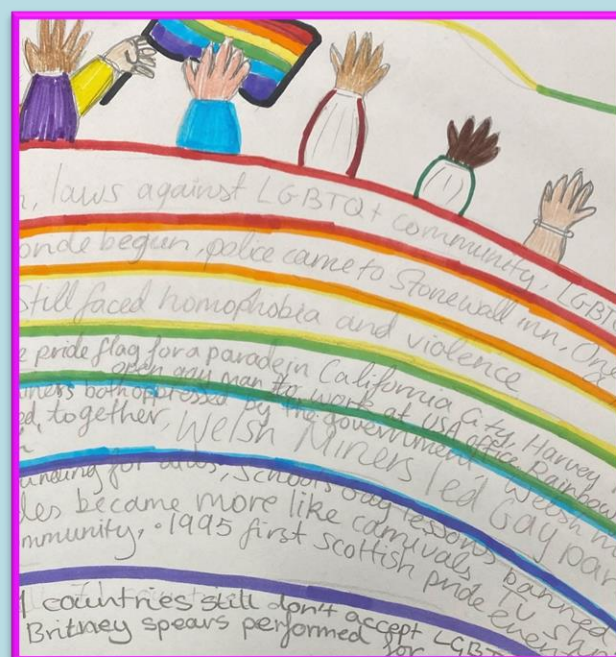 laws against LGBTQ+ community, LGBT
begun, police came to Stonewall inn, One
Still faced homophobia and violence
pride flag for a parade in California City, Harvey
open gay man to work at USA office Rainbow
both oppressed by the government Welsh
together, Welsh Miners led Gay par
for schools lessons banned
became more like carnivals, TV
mmunity, 1995 first scottish pride event
countries still don't accept LGBT
Britney spears performed for